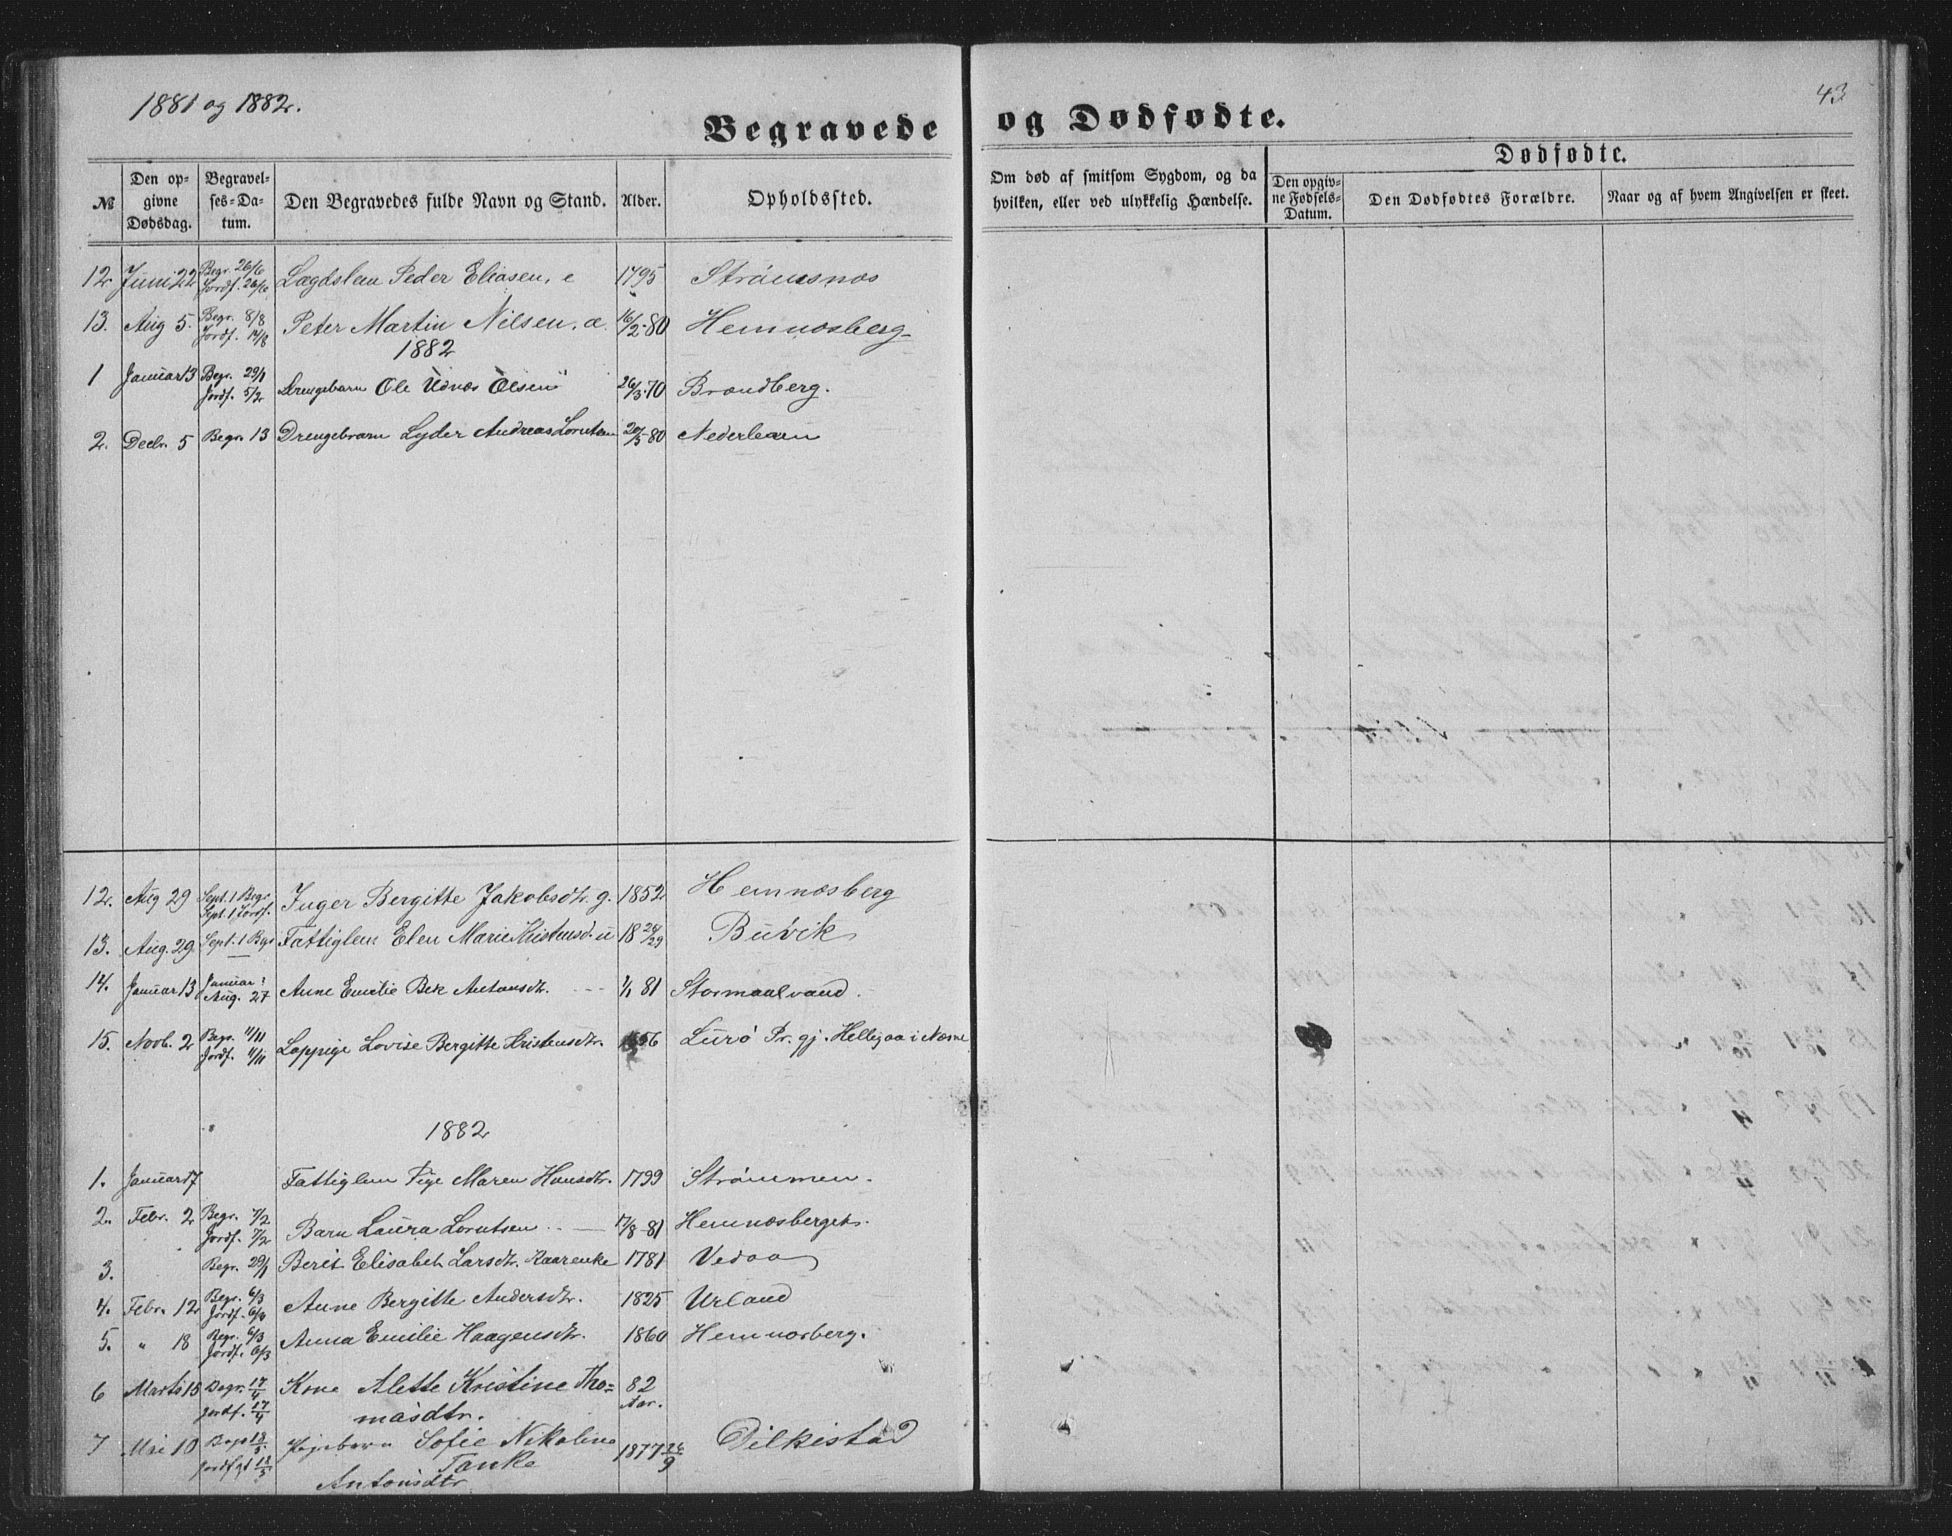 1881 og 1882.
43
Begravede og Dødfødte.
Dødfødte.
№ Den opgivne Dødsdag. Begravelses-Datum. Den Begravedes fulde Navn og Stand. Alder. Opholdssted. Om død af smitsom Sygdom, og da hvilken, eller ved ulykkelig Hændelse. Den opgivne Fødsels-Datum. Den Dødfødtes Forældre. Naar og af hvem Angivelsen er skeet.
12. Juni 22 Begr. 26/6 Jordf. 26/6 Lægdslem Peder Eliasen, e 1795 Strömsnæs
13. Aug 5. Begr. 8/8 Jordf. 14/8 Peter Martin Nilsen. a. 16/2-80 Hemnæsberg
1882
1 Januar 13 Begr. 29/1 Jordf. 5/2 Drengebarn Ole Udnæs Olsen 26/3-70 Brændberg.
2. Decbr. 5 Begr. 13 Drengebarn Lyder Andreas Lorntsen 20/5-80 Nederleren
12. Aug 29 Sept. 1 Begr. Sept. 1 Jordf. Inger Bergitte Jakobsdtr. g. 1852 Hemnæsberg
13. Aug. 29 Sept. 1 Begr Fattiglem Elen Marie Kristensd. u 18 24/29 Buvik
14. Januar 13 Januar ! Aug. 27 Anne Emilie Bek Antonsdtr. 1/1 81 Stormaalvand.
15. Novb. 2 Begr. 11/11 Jordf. 11/11 Lappige Lovise Bergitte Kristensdtr. 1856 Lurö Pr. gj. Hellegaa i Næsne
1882
1. Januar 17 Fattiglem Pige Maren Hansdtr. 1799 Strömmen.
2. Febr. 2 Begr. 7/2 Jordf. 7/2 Barn Laura Lorntsen 17/8-81 Hemnæsberget.
3. Begr. 29/1 Berit Elisabeth Larsdtr. Kaarenke 1781 Vedaa
4. Febr. 12 Begr. 6/3 Jordf. 6/3 Anne Bergitte Andersdtr. 1825 Urland
5. " 18 Begr. 6/3 Jordf. 6/3 Anna Emilie Haagensdtr. 1860 Hemnæsberg.
6 Marts 15 Begr. 17/4 Jordf. 17/4 Kone Alette Kristine Tho= 82 Aar.
masdtr.
7 Mai 10 Begr 18/5 Jordfgt 18/5 Pigebarn Sofie Nikoline 1877 26/9 Dilkestad
Tanke
Antonsdtr